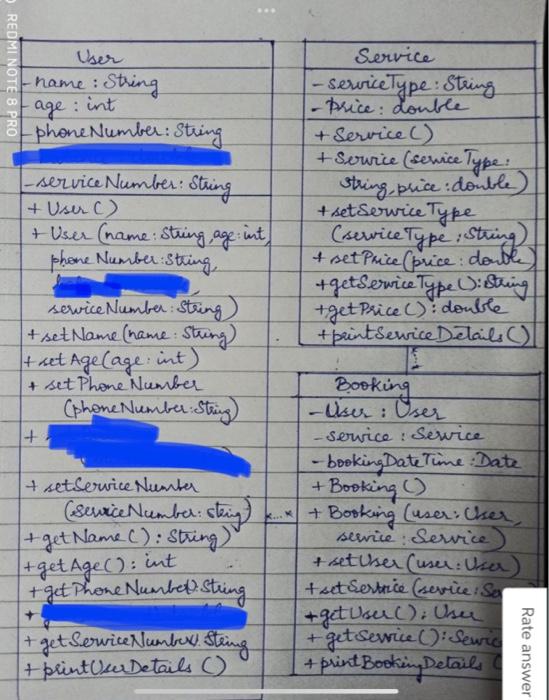 REDMI NOTE 8 PRO
User
- name : String
- age : int
- phoneNumber : String
- serviceNumber : String
+ User ( )
+ User (name : String, age : int,
phone Number : String,
serviceNumber : String)
+ setName (name : String)
+ set Age (age : int)
+ set Phone Number
(phoneNumber : String)
+
+ setService Number
(serviceNumber : string)
+ getName ( ) : String)
+ getAge ( ) : int
+ get PhoneNumber) String
+
+ getServiceNumber String
+ printUserDetails ( )
Service
- serviceType : String
- Price : double
+ Service ( )
+ Service (service Type :
String, price : double)
+ setService Type
(serviceType : String)
+ set Price (price : double)
+ getService Type ( ) : String
+ getPrice ( ) : double
+ printServiceDetails ( )
Booking
- User : User
- service : Service
- bookingDateTime : Date
+ Booking ( )
+ Booking (user : User,
service : Service)
+ setUser (user : User)
+ setService (service : Se
+ getUser ( ) : User
+ getService ( ) : Servic
+ printBookingDetails (
Rate answer